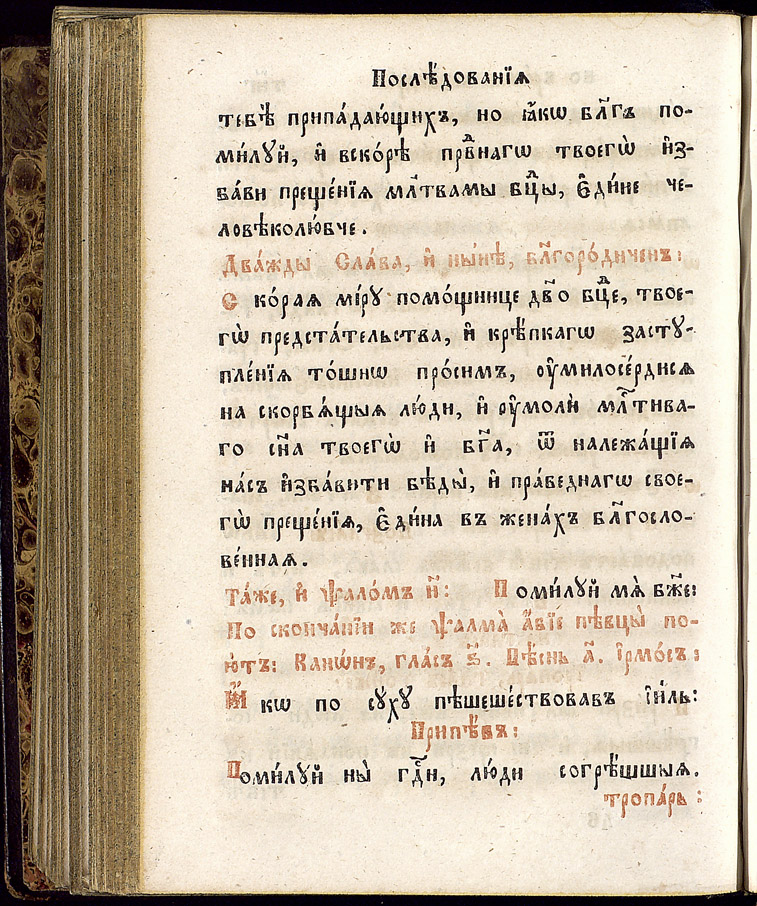 Послѣ́дованїѧ
тебѣ̀ припа́дающихъ, но ꙗ҆́кѡ бл҃гъ по-
ми́лꙋй, и҆ вско́рѣ првⷣнагѡ твоегѡ̀ и҆з-
ба́ви преще́нїѧ мл҃твамы бцⷣы, є҆ди́не че-
ловѣколю́бче.
Два́жды Сла́ва, и҆ ны́нѣ, бл҃горо́диченъ:
Ско́рая мі́рꙋ помо́щнице дв҃о бцⷣе, твое-
гѡ̀ предста́тельства, и҆ крѣ́пкагѡ застꙋ-
пле́нїѧ то́щнѡ про́симъ, ᲂу҆милосе́рдисѧ
на скорбѧ́щыѧ лю́ди, и҆ ᲂу҆молѝ мл҇тива-
го сн҃а твоегѡ̀ и҆ бг҃а, ѿ належа́щїѧ
на́съ и҆зба́вити бѣды̀, и҆ пра́веднагѡ свое-
гѡ̀ преще́нїѧ, є҆ди́на въ жена́хъ бл҃госло-
ве́нная.
Та́же, и҆ ѱало́мъ н҃: Поми́лꙋй мѧ̀ бж҃е:
По сконча́нїи же ѱалма̀ а҆́бїе пѣвцы̀ по-
ю́тъ: Канѡ́нъ, гла́съ ѕ҃. Пѣ́снь а҃. І҆рмо́съ:
Ꙗ҆́кѡ по сꙋ́хꙋ пѣшеше́ствовавъ і҆и҃ль:
Припѣ́въ:
Поми́лꙋй ны̀ гдⷭ҇и, лю́ди согрѣ́шшыѧ.
тропа́рь: